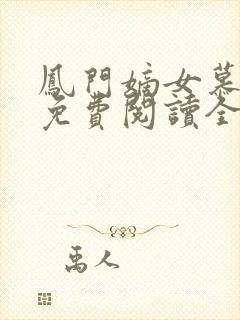 鳳門嫡女慕
免費閱讀全
禹人